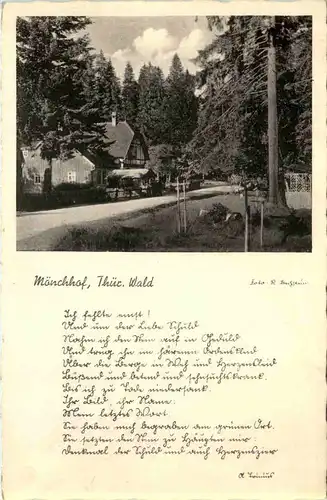 Mönchhof, Thür. Wald
Ich fehlte einst!
Und um der Liebe Schuld
Nahm ich den Stein auf in Geduld
Und trug ihn im härenen Ordenskleid
Über die Berge in Weh und Herzeleid
Büßend und betend und sehnsuchtskrank.
Bis ich zu Tode niedersank.
Ihr Bild, ihr Name.
Mein letztes Wort.
Sie haben mich begraben am grünen Ort.
Sie setzten den Stein zu Häupten mir
Denkmal der Schuld und auch Herzenszier